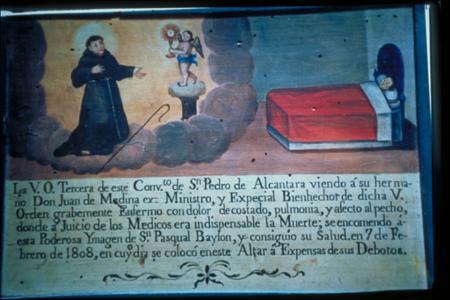 La V. O. Tercera de este Conv.to de Sn. Pedro de Alcantara viendo á su herma-
no Don Juan de Medina ex: Ministro, y Expecial Bienhechor de dicha V.
Orden grabemente Enfermo con dolor de costado, pulmonia, y afecto al pecho,
donde a Juicio de los Medicos era indispensable la Muerte; se encomendo á
esta Poderosa Ymagen de Sn. Pasqual Baylon, y consiguio su Salud. en 7 de Fe-
brero de 1808, en cuyo dia se colocó en este Altar á Expensas de sus Debotos.